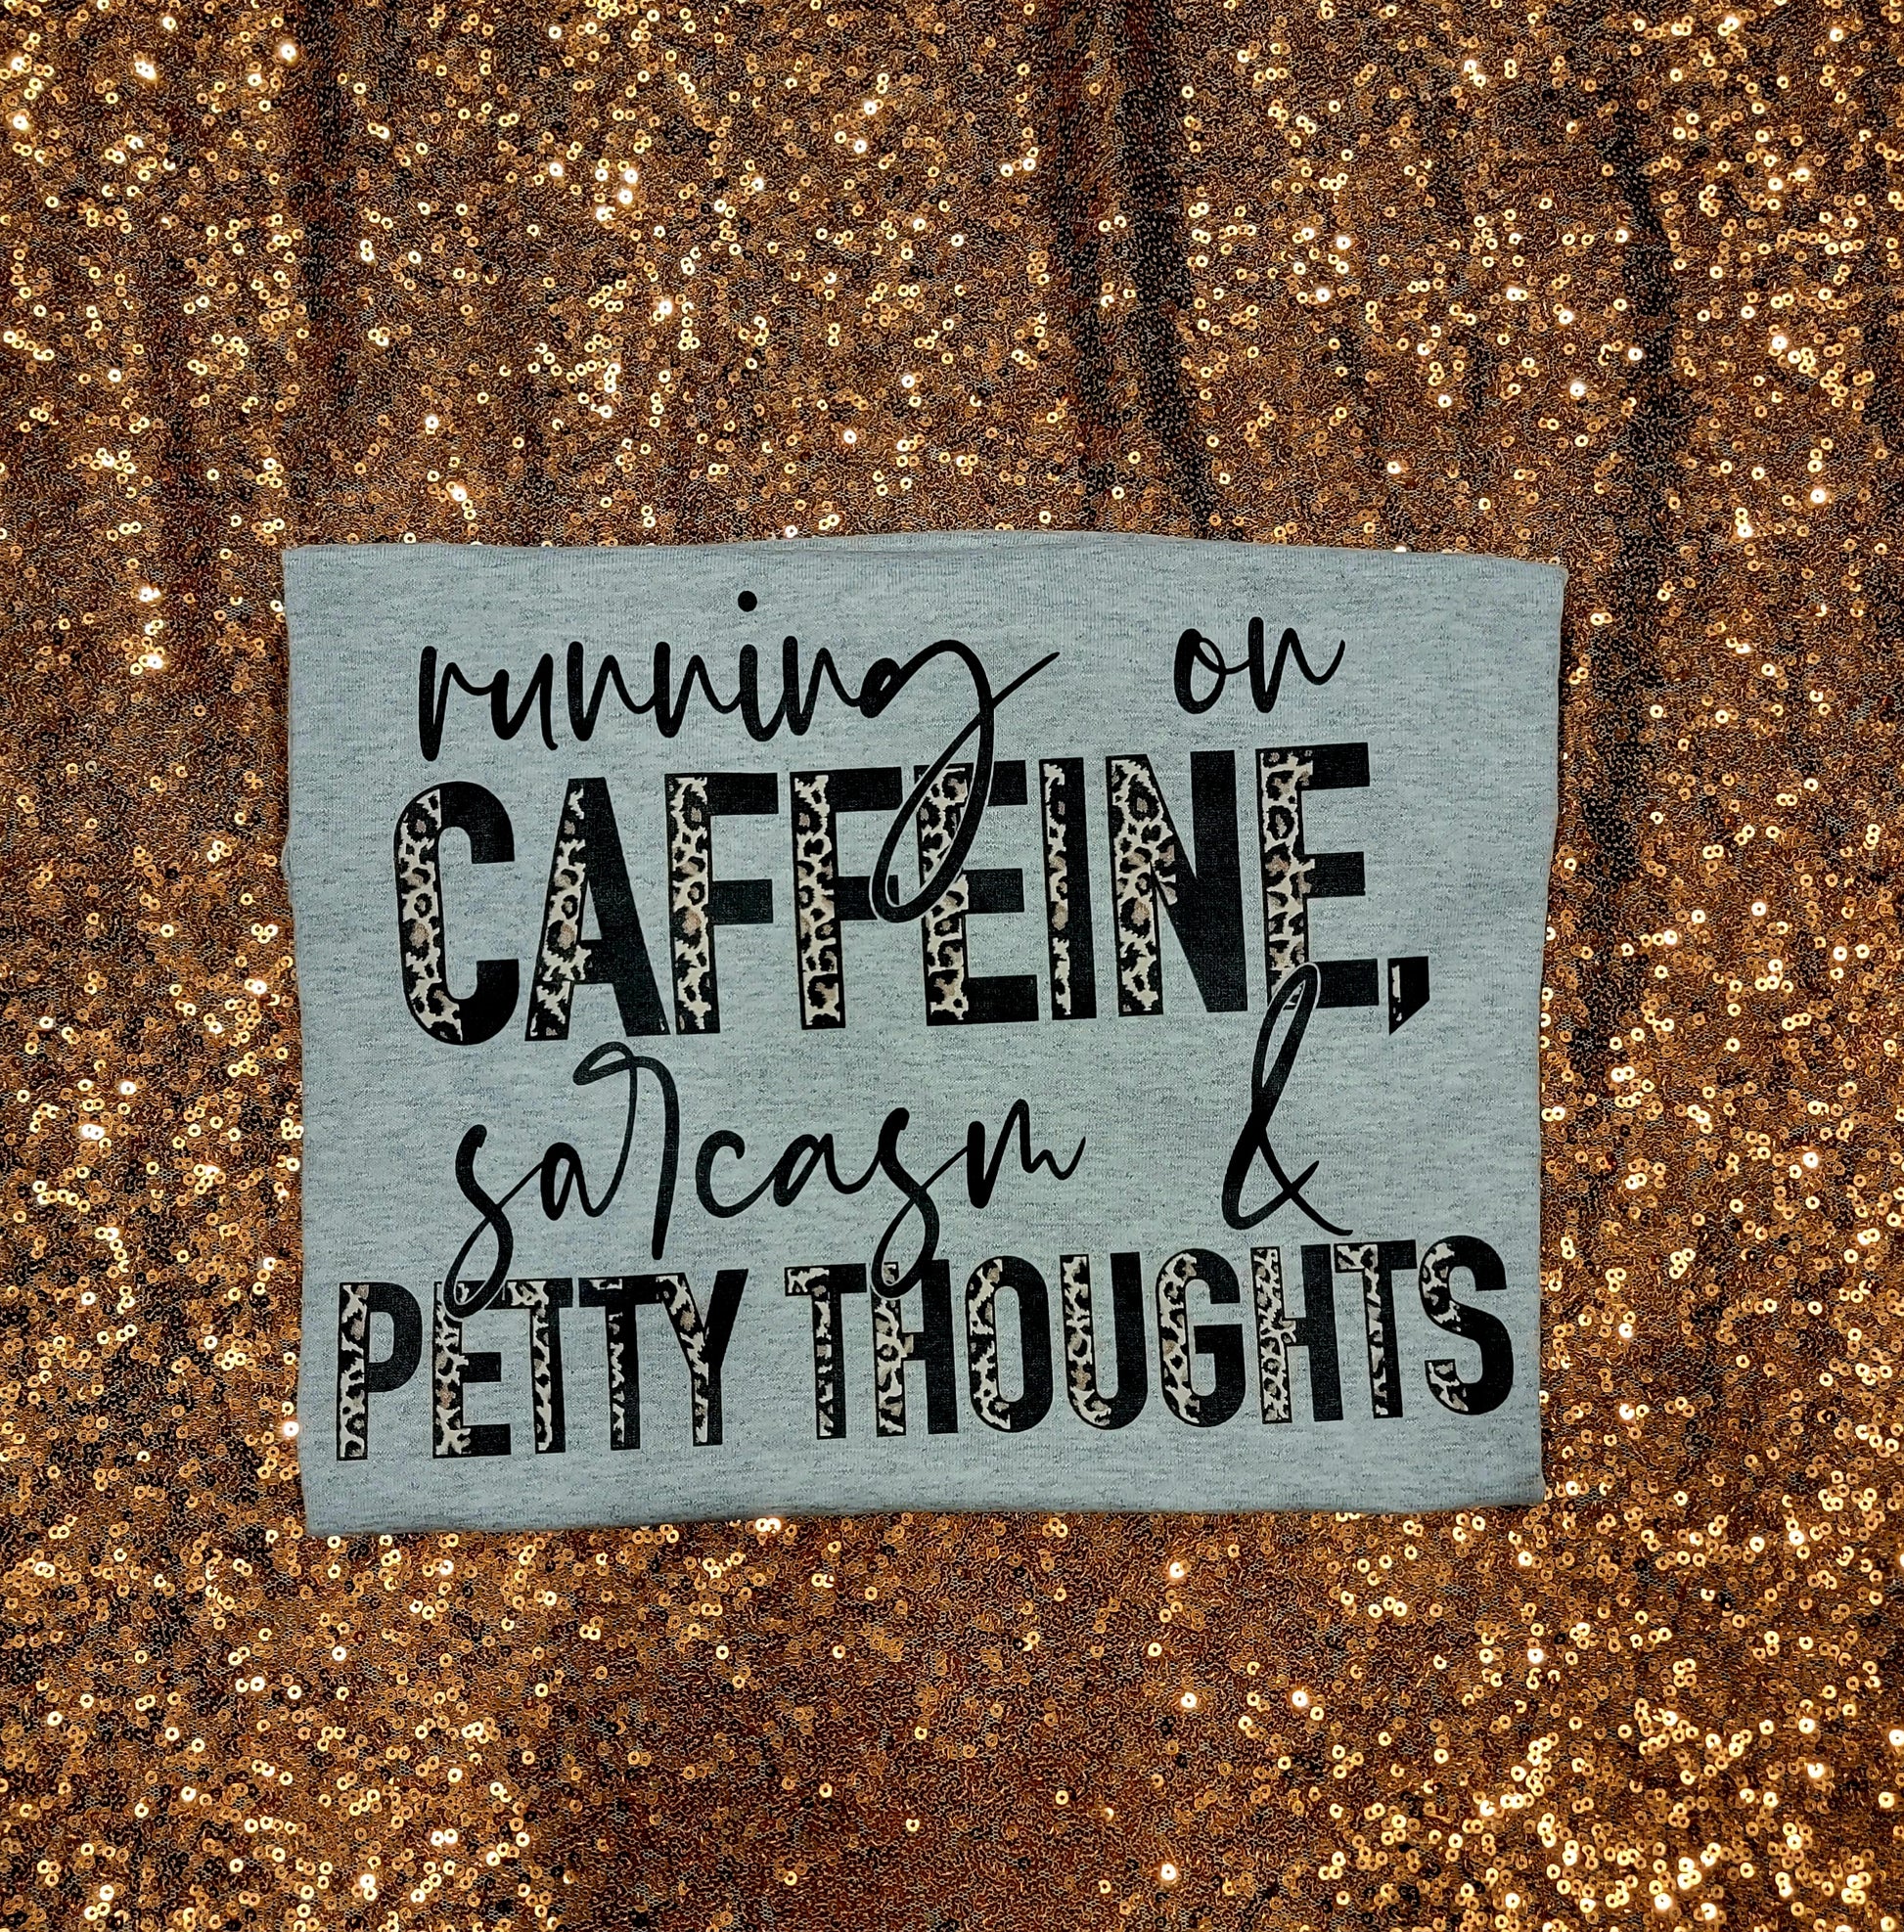 running on
CAFFEINE,
sarcasm &
PETTY THOUGHTS